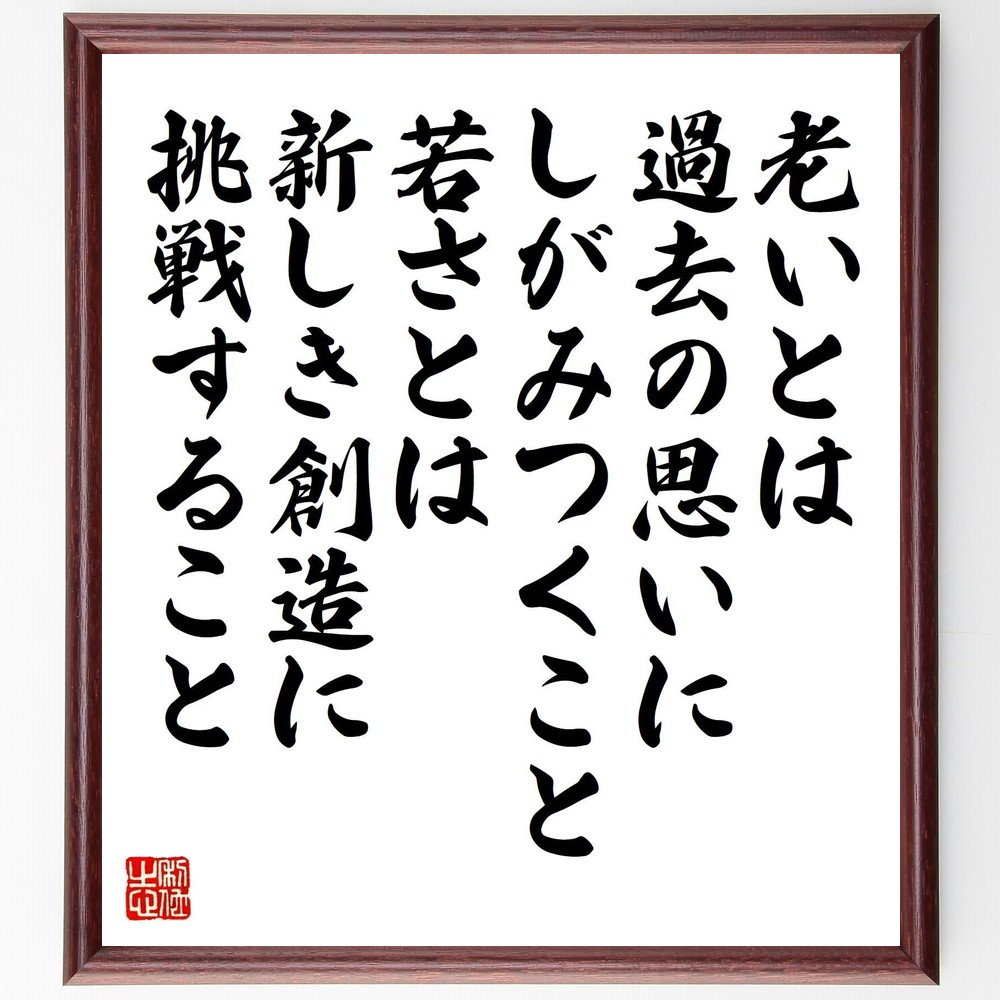 老いとは
過去の思いに
しがみつくこと
若さとは
新しき創造に
挑戦すること